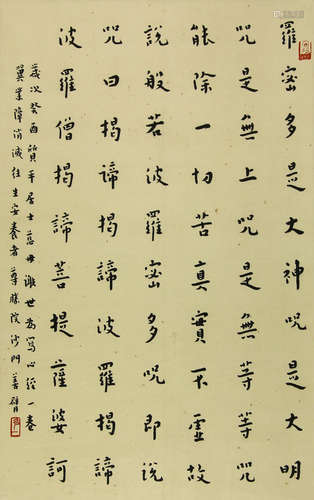 羅蜜多是大神咒是大明
咒是無上咒是無等等咒
能除一切苦真實不虛故
說般若波羅蜜多咒即說
咒曰揭諦揭諦波羅揭諦
波羅僧揭諦菩提薩婆訶
歲次癸酉質平居士慈母謝世為寫心經一卷
冀業障消滅往生安養者尊勝院沙門善臂